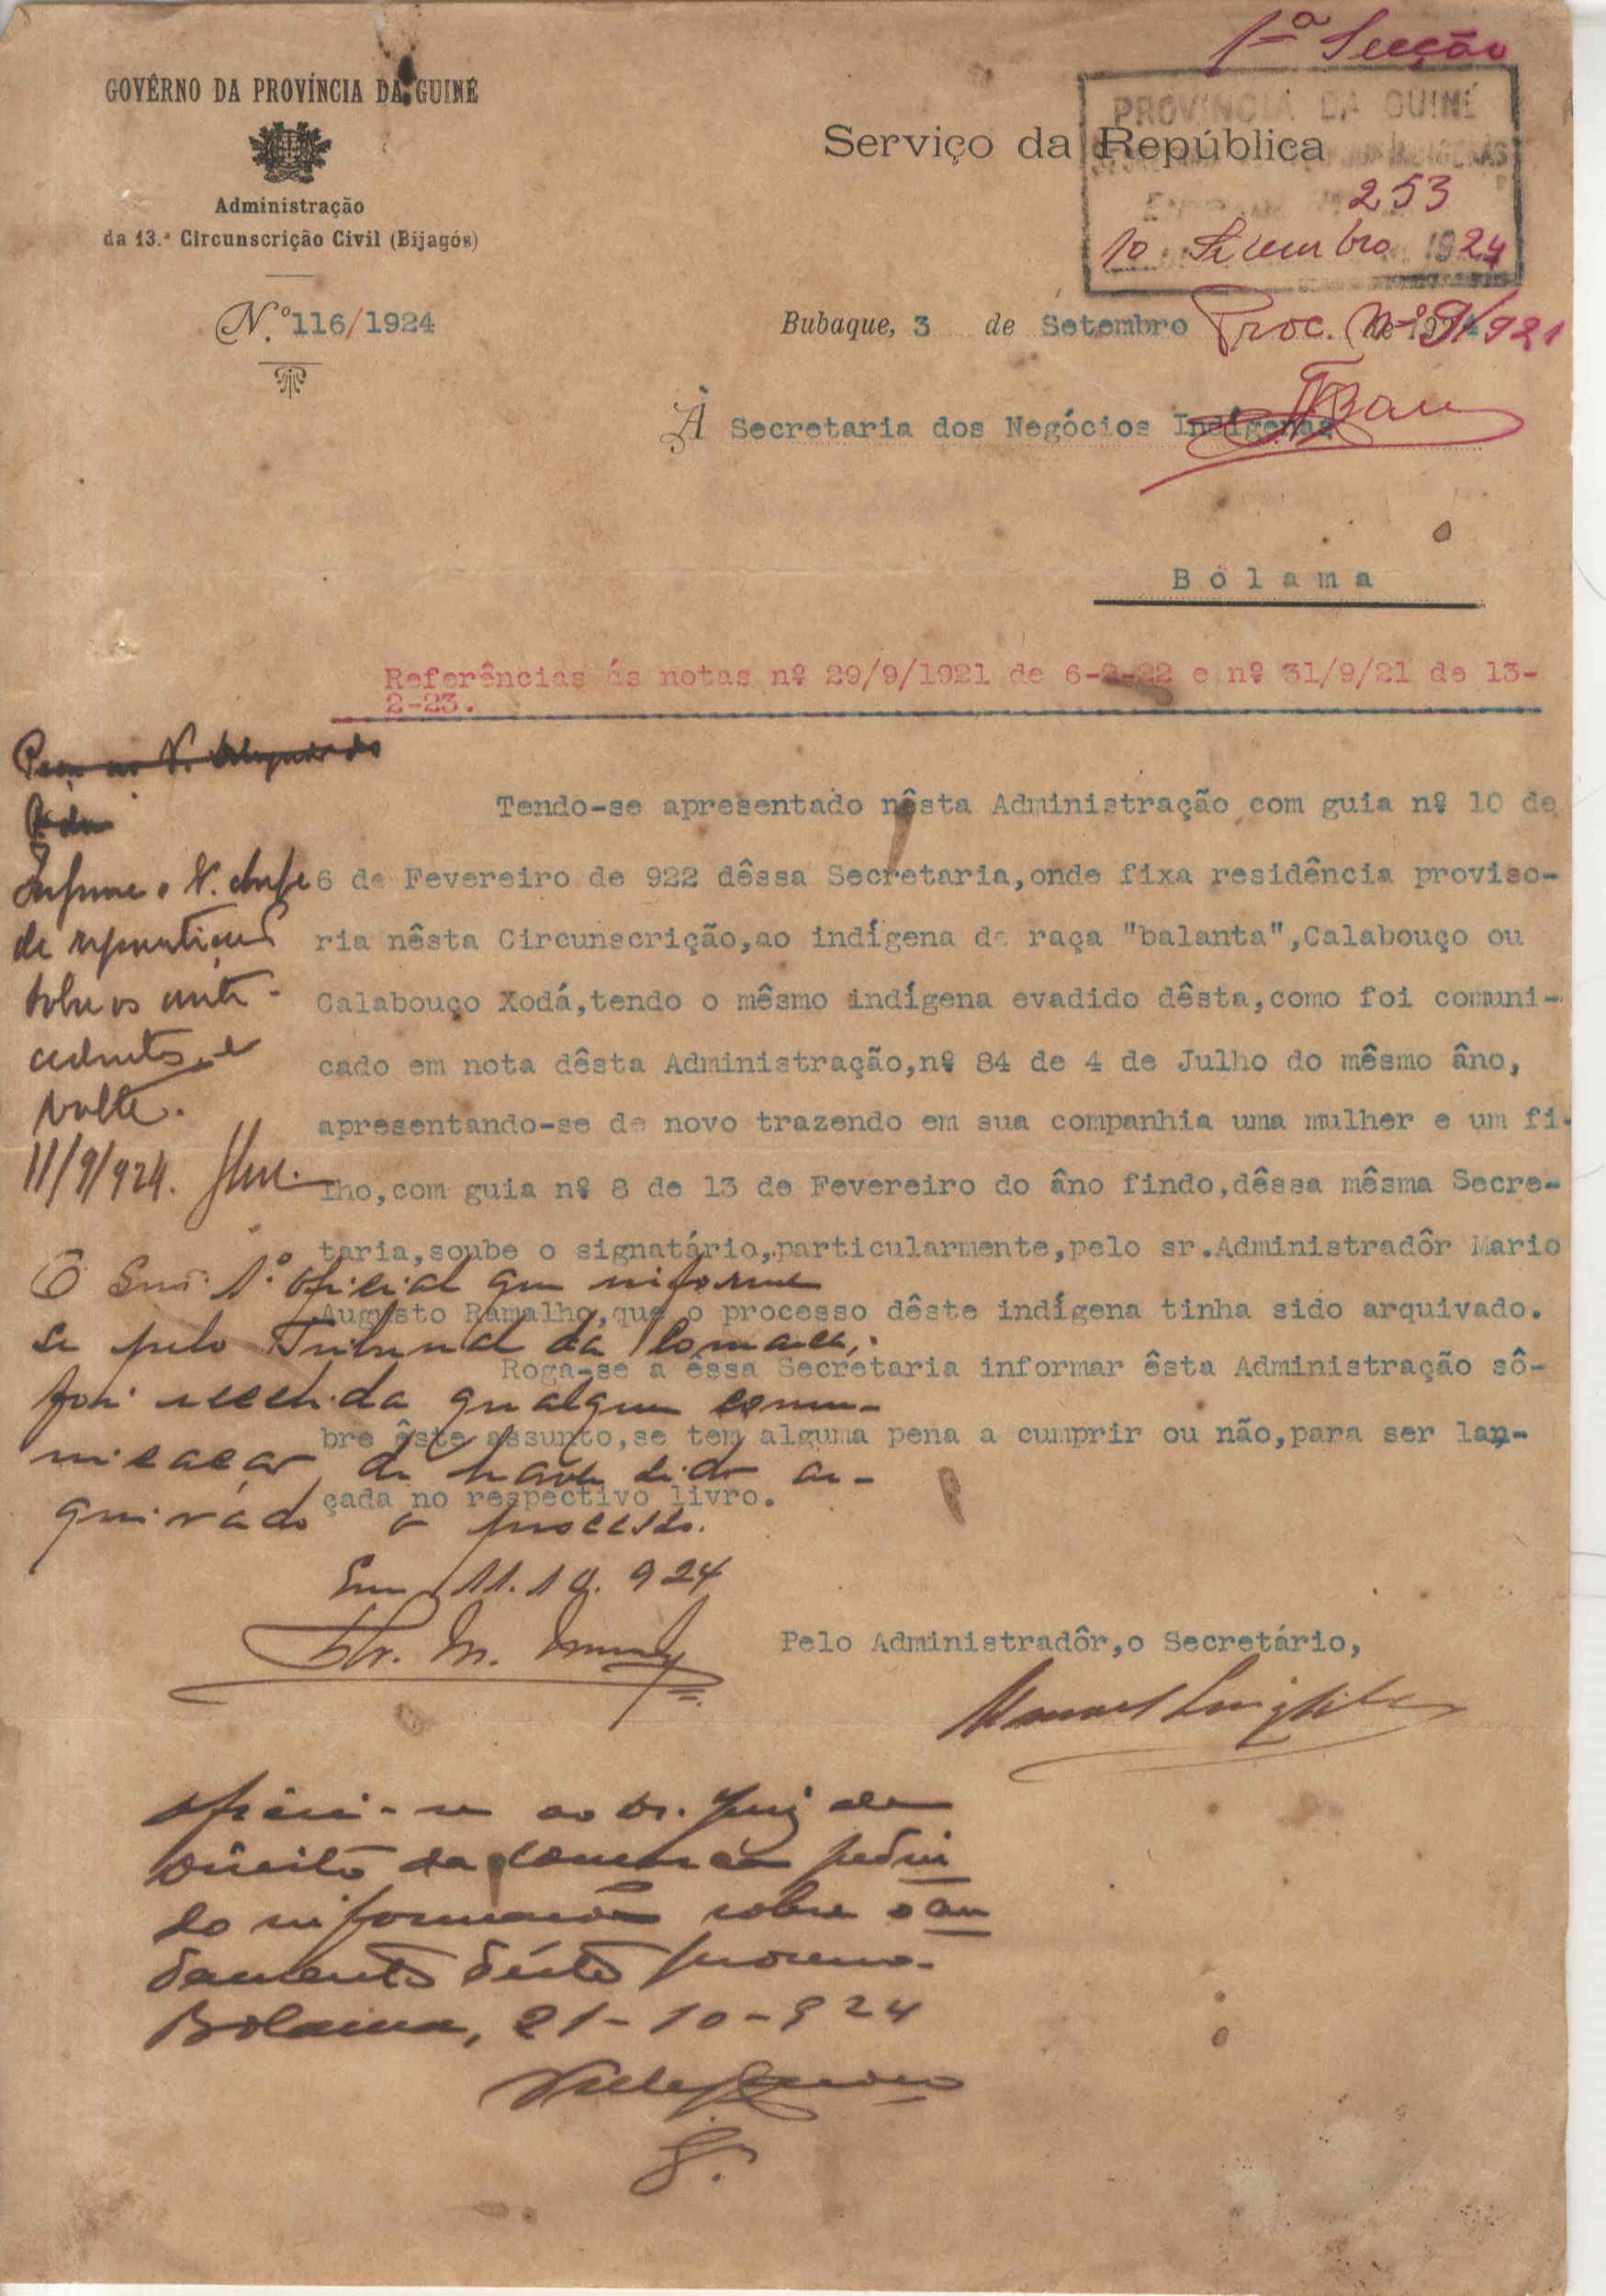 1ª Secção
GOVÊRNO DA PROVÍNCIA DA GUINÉ
Administração
da 13.ª Circunscrição Civil (Bijagós)
Serviço da República
PROVÍNCIA DA GUINÉ
253
10 Setembro 1924
Proc. Nº 9/921
N.º 116/1924
Bubaque, 3 de Setembro de 1924
À Secretaria dos Negócios Indígenas
Bolama
Referências ás notas nº 29/9/1921 de 6-2-22 e nº 31/9/21 de 13-
2-23.
Tendo-se apresentado nêsta Administração com guia nº 10 de
6 de Fevereiro de 922 dêssa Secretaria,onde fixa residência proviso-
ria nêsta Circunscrição,ao indígena de raça "balanta",Calabouço ou
Calabouço Xodá,tendo o mêsmo indígena evadido dêsta,como foi comuni-
cado em nota dêsta Administração,nº 84 de 4 de Julho do mêsmo âno,
apresentando-se de novo trazendo em sua companhia uma mulher e um fi-
lho,com guia nº 8 de 13 de Fevereiro do âno findo,dêssa mêsma Secre-
taria,soube o signatário,particularmente,pelo sr.Administradôr Mario
Augusto Ramalho,que o processo dêste indígena tinha sido arquivado.
Roga-se a éssa Secretaria informar êsta Administração sô-
bre êste assunto,se tem alguma pena a cumprir ou não,para ser lan-
çada no respectivo livro.
Pelo Administradôr,o Secretário,
Informe o
de repartição
sobre os ante-
cedentes e
volte.
11/9/924.
1.º Oficial que informe
se pelo Tribunal da Comarca,
foi recebida qualquer comu-
nicacar de haver sido ar-
quivado o processo.
Em 11.10.924
Oficie-se ao Dr. Juiz de
Direito da Comarca pedin
do informação sobre o an
damento dêste processo.
Bolama, 21-10-924